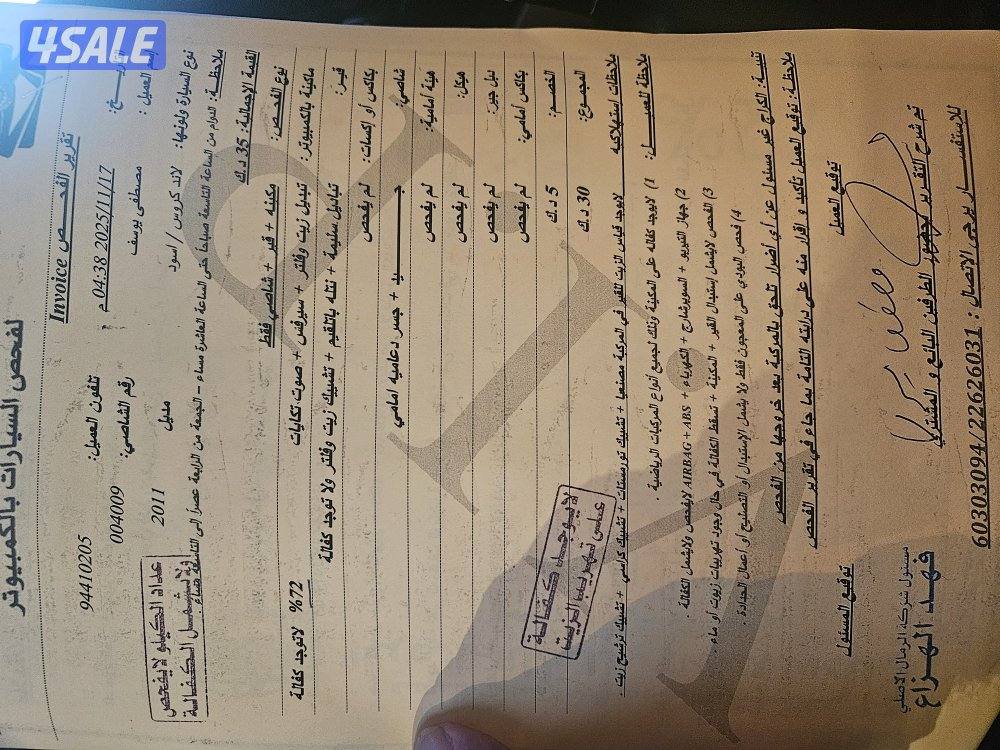 4SALE
لفحص السيارات بالكمبيوتر
تقرير الفحص Invoice
04:38 2025/11/17 م
اسم العميل: مصطفى يوسف تلفون العميل: 94410205
نوع السيارة ولونها: لاند كروس / اسود مديل 2011 رقم الشاصي: 004009
عداد الكيلو لا يفحص
ولا يشمل الكفالة
ملاحظة: الدوام من الساعة التاسعة صباحاً حتى الساعة العاشرة مساء - الجمعة من الرابعة عصراً الى التاسعة مساء
القيمة الإجمالية: 35 د.ك
نوع الفحص: مكينه + قير + شاصي فقط
ماكينة بالكمبيوتر: تبديل زيت وفلتر + سيرفس + صوت تكايات 72% لاتوجد كفالة
قير: تباديل سليمة + نتله بالتلقيم + تشييك زيت وفلتر ولا توجد كفالة
بكاكس أو إكسات: لم يفحص
شاصي: جيد + جسر دعاميه امامي
هيئة أمامية: لم يفحص
هيكل: لم يفحص
دبل جير: لم يفحص
بكاكس أمامي: لم يفحص
الخصم: 5 د.ك
المجموع: 30 د.ك
لا يوجد كفالة
على تهريب الزيت
ملاحظات استهلاكيه لايوجد قياس الزيت للقير في المركبة مصنعيا + تشييك ثورمستات + تشييك كراسي + تشييك ترشيح زيت .
ملاحظة للعميل: 1) لايوجد كفاله على المكينة وذلك لجميع أنواع المركبات الرياضية .
2) جهاز التيربو + السوبرشارج + الكهرباء + AIRBAG + ABS لايفحص ولايشمل الكفالة
3) الفحص لايشمل إستبدال القير + المكينة + تسقط الكفالة في حال وجود تهريبات زيوت أو ماء .
4) فحص البودي على المعجون فقط ولا يشمل الإستبدال أو التصليح أو أعمال الحدادة .
تنبيه: الكراج غير مسئول عن أي أضرار تلحق بالمركبة بعد خروجها من الفحص
ملاحظة: توقيع العميل تأكيد و إقرار منه على درايته التامة بما جاء في تقرير الفحص
توقيع العميل توقيع المسئول
تم شرح التقرير بحضور الطرفين البائع و المشتري
مسئول شركة الرمال الاصلي
فهد الهزاع
للاستفسار يرجى الاتصال : 60303094/22626031